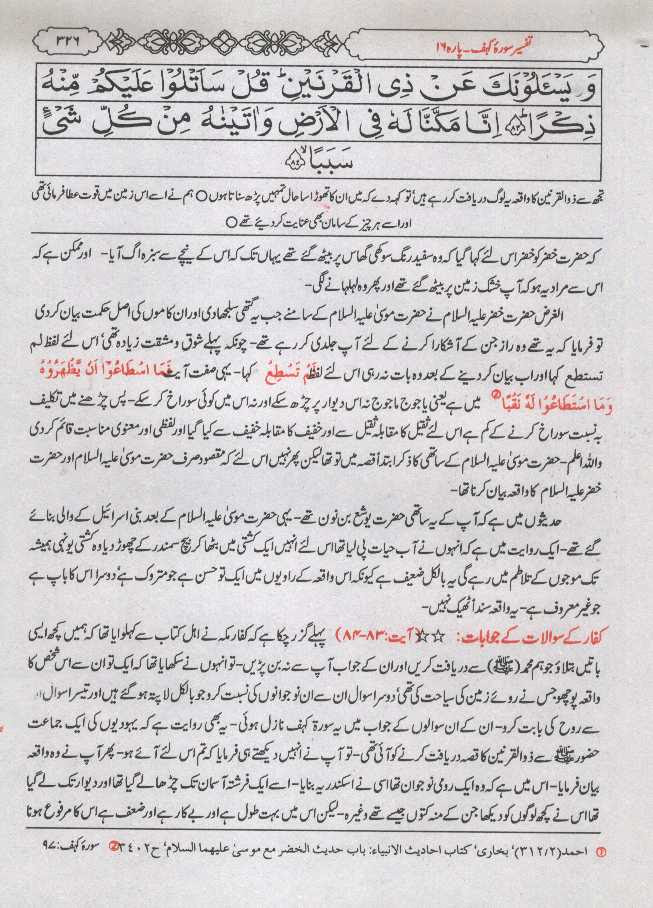 تفسیر سورۂ کہف۔ پارہ ۱۶
۳۲۶
وَ يَسْـَٔلُوْنَكَ عَنْ ذِی الْقَرْنَيْنِ ؕ قُلْ سَاَتْلُوْا عَلَيْكُمْ مِّنْهُ
ذِكْرًا ؕ۸۳ اِنَّا مَكَّنَّا لَهٗ فِی الْاَرْضِ وَاٰتَيْنٰهُ مِنْ كُلِّ شَیْءٍ
سَبَبًا ۙ۸۴
تجھ سے ذوالقرنین کا واقعہ یہ لوگ دریافت کر رہے ہیں' تو کہہ دے کہ میں ان کا تھوڑا سا حال تمہیں پڑھ سناتا ہوں ○ ہم نے اسے اس زمین میں قوت عطا فرمائی تھی
اور اسے ہر چیز کے سامان بھی عنایت کر دیئے تھے ○
کہ حضرت خضر کو خضر اس لئے کہا گیا کہ وہ سفید رنگ سوکھی گھاس پر بیٹھ گئے تھے یہاں تک کہ اس کے نیچے سے سبزہ اگ آیا۔ اور ممکن ہے کہ
اس سے مراد یہ ہو کہ آپ خشک زمین پر بیٹھ گئے تھے اور پھر وہ لہلہانے لگی۔
الغرض حضرت خضر علیہ السلام نے حضرت موسیٰ علیہ السلام کے سامنے جب یہ گتھی سلجھا دی اور ان کاموں کی اصل حکمت بیان کر دی
تو فرمایا کہ یہ تھے وہ راز جن کے آشکارا کرنے کے لئے آپ جلدی کر رہے تھے۔ چونکہ پہلے شوق و مشقت زیادہ تھی' اس لئے لفظ لم
تستطع کہا اور اب بیان کر دینے کے بعد وہ بات نہ رہی اس لئے لفظ لَمْ تَسْطِعْ کہا۔ یہی صفت آیت فَمَا اسْطَاعُوْا اَنْ يَّظْهَرُوْهُ
وَمَا اسْتَطَاعُوْا لَهٗ نَقْبًا ② میں ہے یعنی یاجوج ماجوج نہ اس دیوار پر چڑھ سکے اور نہ اس میں کوئی سوراخ کر سکے۔ پس چڑھنے میں تکلیف
بہ نسبت سوراخ کرنے کے کم ہے اس لئے ثقیل کا مقابلہ ثقیل سے اور خفیف کا مقابلہ خفیف سے کیا گیا اور لفظی اور معنوی مناسبت قائم کر دی
واللہ اعلم۔ حضرت موسیٰ علیہ السلام کے ساتھی کا ذکر ابتدا قصہ میں تو تھا لیکن پھر نہیں اس لئے کہ مقصود صرف حضرت موسیٰ علیہ السلام اور حضرت
خضر علیہ السلام کا واقعہ بیان کرنا تھا۔
حدیثوں میں ہے کہ آپ کے یہ ساتھی حضرت یوشع بن نون تھے۔ یہی حضرت موسیٰ علیہ السلام کے بعد بنی اسرائیل کے والی بنائے
گئے تھے۔ ایک روایت میں ہے کہ انہوں نے آب حیات پی لیا تھا اس لئے انہیں ایک کشتی میں بٹھا کر بیچ سمندر کے چھوڑ دیا وہ کشتی یونہی ہمیشہ
تک موجوں کے تلاطم میں رہے گی یہ بالکل ضعیف ہے کیونکہ اس واقعہ کے راویوں میں ایک تو حسن ہے جو متروک ہے' دوسرا اس کا باپ ہے
جو غیر معروف ہے۔ یہ واقعہ سنداً ٹھیک نہیں۔
کفار کے سوالات کے جوابات : ☆☆ (آیت: ۸۳-۸۴) پہلے گزر چکا ہے کہ کفار مکہ نے اہل کتاب سے کہلوایا تھا کہ ہمیں کچھ ایسی
باتیں بتلاؤ جو ہم محمد (ﷺ) سے دریافت کریں اور ان کے جواب آپ سے نہ بن پڑیں۔ تو انہوں نے سکھایا تھا کہ ایک تو ان سے اس شخص کا
واقعہ پوچھو جس نے روئے زمین کی سیاحت کی تھی' دوسرا سوال ان سے ان نوجوانوں کی نسبت کرو جو بالکل لاپتہ ہو گئے ہیں اور تیسرا سوال ان
سے روح کی بابت کرو۔ ان کے ان سوالوں کے جواب میں یہ سورۂ کہف نازل ہوئی۔ یہ بھی روایت ہے کہ یہودیوں کی ایک جماعت
حضور ﷺ سے ذوالقرنین کا قصہ دریافت کرنے کو آئی تھی۔ تو آپ نے انہیں دیکھتے ہی فرمایا کہ تم اس لئے آئے ہو۔ پھر آپ نے وہ واقعہ
بیان فرمایا۔ اس میں ہے کہ وہ ایک رومی نوجوان تھا اسی نے اسکندریہ بنایا۔ اسے ایک فرشتہ آسمان تک چڑھا لے گیا تھا اور دیوار تک لے گیا
تھا اس نے کچھ لوگوں کو دیکھا جن کے منہ کتوں جیسے تھے وغیرہ۔ لیکن اس میں بہت طول ہے اور بے کار ہے اور ضعف ہے اس کا مرفوع ہونا
① احمد (۳۱۲/۲)' بخاری' کتاب احادیث الانبیاء: باب حدیث الخضر مع موسیٰ علیہما السلام' ح ۳۴۰۲ ② سورۂ کہف: ۹۷